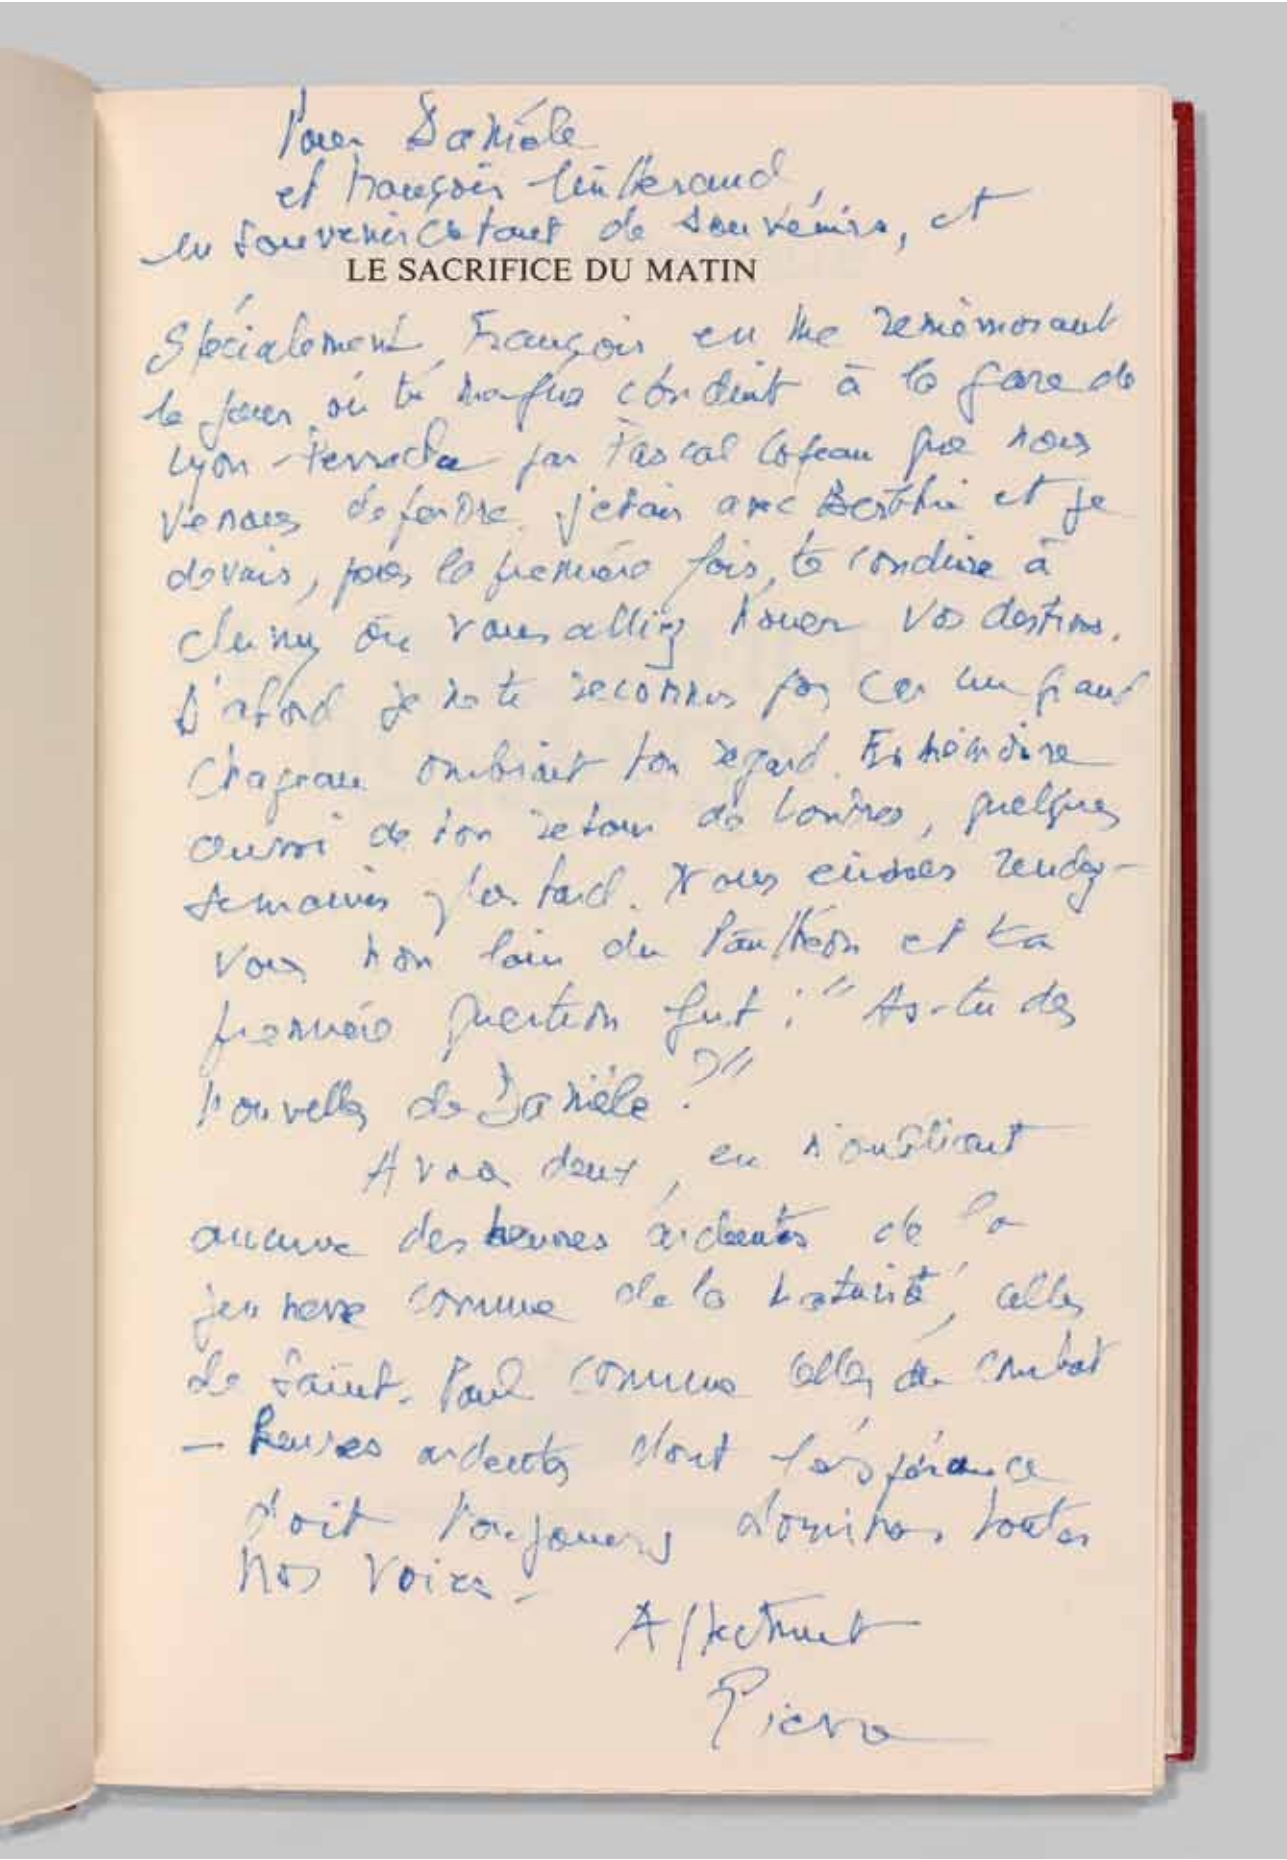 Pour Danièle
et François Mitterrand,
en souvenir de tant de souvenirs, et
LE SACRIFICE DU MATIN
spécialement, François, en me remémorant
le jour où tu fus conduit à la gare de
Lyon-Perrache par Pascal Copeau que nous
venons de perdre. J'étais avec Berthie et je
devais, pour la première fois, te conduire à
Cluny où vous alliez nouer vos destins.
D'abord je ne te reconnus pas car un grand
chapeau ombrait ton regard. En mémoire
aussi de ton retour de Londres, quelques
semaines plus tard. Nous eûmes rendez-
vous non loin du Panthéon et ta
première question fut : "As-tu des
nouvelles de Danièle ?"
A vous deux, en n'oubliant
aucune des heures ardentes de la
jeunesse comme de la maturité, celles
de Saint-Paul comme celles du combat
— heures ardentes dont l'espérance
doit toujours dominer toutes
nos voix.
Affectnuet
Pierre